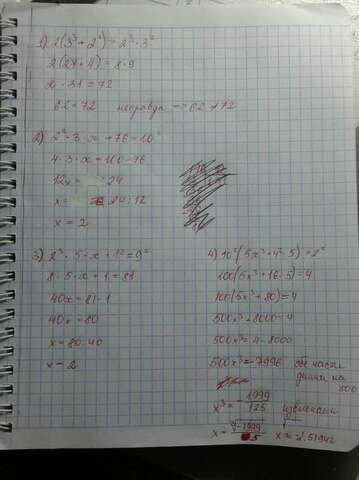 1) 2(3³+2²)=2³·3²
2(27+4)=8·9
2·31=72
62=72 неправда → 62≠72
2) 2²·3·x+76=10²
4·3·x=100-76
12x=24
x=24:12
x=2
3) 2³·5·x+1²=9²
8·5·x+1=81
40x=81-1
40x=80
x=80:40
x=2
4) 10²(5x³+4²·5)=2²
100(5x³+16·5)=4
100(5x³+80)=4
500x³+8000=4
500x³=4-8000
500x³=-7996 обе части
на
500
x³=-1999/125
x=
5 x≈-2,51942